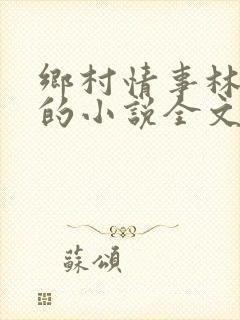 鄉村情事林
的小說全文
蘇頌